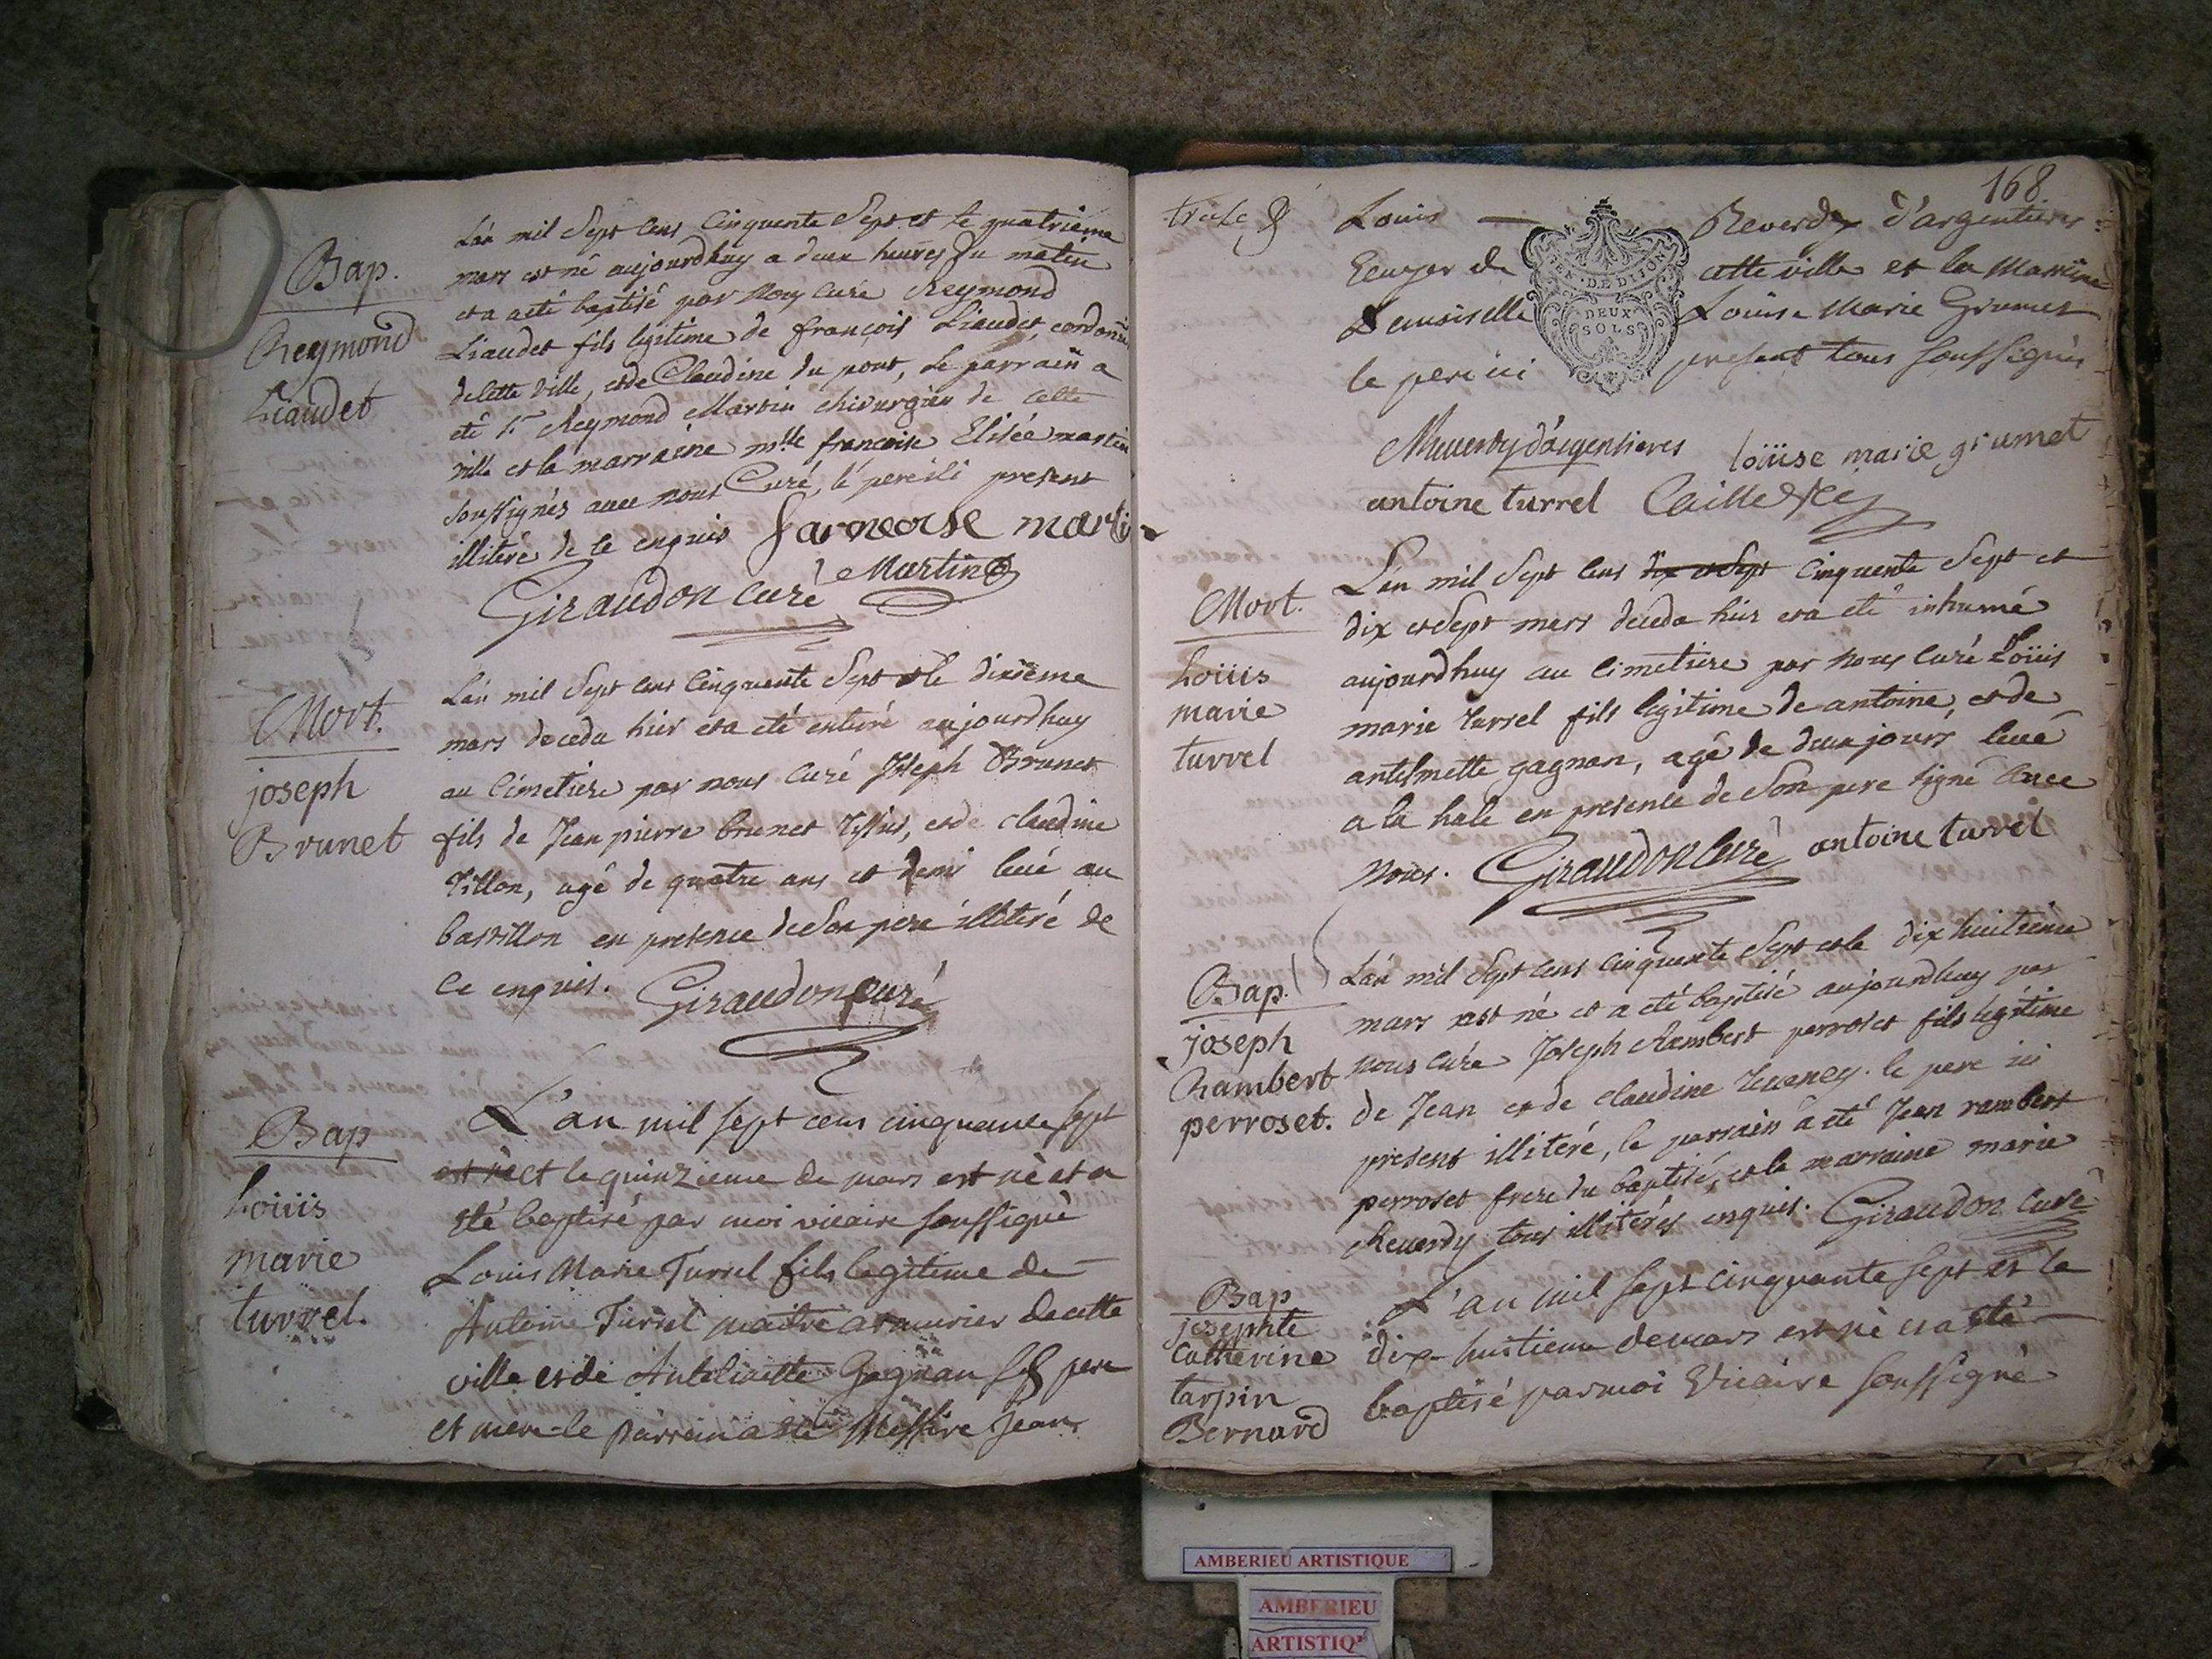 Bap.
Reymond
Liaudet
Lan mil Sept cens Cinquente Sept et le quatrieme
mars est né aujourdhuy a deux heures du matin
et a eté baptisé par nous curé Reymond
Liaudet fils legitime de françois Liaudet, cordonnier
de cette ville, et de Claudine du pont, Le parrain a
eté Sr Reymond Martin chirurgien de cette
ville et la marraine mlle francoise Elisée martin
soussignés avec nous Curé, le pere ici present
illiteré de ce enquis francoise martin
Giraudon curé Martin
Mort.
joseph
Brunet
Lan mil Sept cens Cinquente Sept et le dixieme
mars deceda hier et a eté enteré aujourdhuy
au Cimetiere par nous curé Joseph Brunet
fils de Jean pierre brunet Tissier, et de claudine
Tillon, agé de quatre ans et demi levé au
bastillon en presence de Son pere illiteré de
ce enquis. Giraudon curé
Bap
Loüis
marie
turrel.
L'an mil sept cens cinquante sept
est né et le quinzieme de mars est né et a
eté baptisé par moi vicaire soussigné
Louis Marie Turrel fils legitime de
Antoine Turrel maitre armurier de cette
ville et de Antelmette Gagnan ses pere
et mere le parrain a eté Messire Jean
168
treize 8
Louis Reverdy d'argentieres
GEN. DE DIJON
DEUX
SOLS
Ecuyer de cette ville et la Marraine
Demoiselle Louise Marie Grumet
le pere ici present tous soussignés
MReverdy d'argentieres loüise marie grumet
antoine turrel Caille Vic
Mort.
Loüis
marie
turrel
Lan mil Sept cens dix et Sept Cinquente Sept et
dix et Sept mars deceda hier et a eté inhumé
aujourdhuy au Cimetiere par nous Curé Loüis
marie turrel fils legitime de antoine, et de
antelmette gagnan, agé de deux jours levé
a la hale en presence de Son pere signé avec
nous. Giraudon Curé antoine turrel
Bap.
joseph
Rambert
perroset.
Lan mil Sept cens cinquente Sept et le dix huitieme
mars est né et a eté baptisé aujourdhuy par
nous curé Joseph Rambert perroset fils légitime
de Jean et de claudine Juveney. le pere ici
present illiteré, le parrain a eté Jean rambert
perroset frere du baptisé, et la marraine marie
Reverdy tous illiterés enquis. Giraudon Curé
Bap
josephte
Catherine
tarpin
Bernard
L'an mil sept cinquante sept et le
dix-huitieme de mars est né et a eté
baptisé par moi Vicaire soussigné
AMBERIEU ARTISTIQUE
AMBERIEU
ARTISTIQ